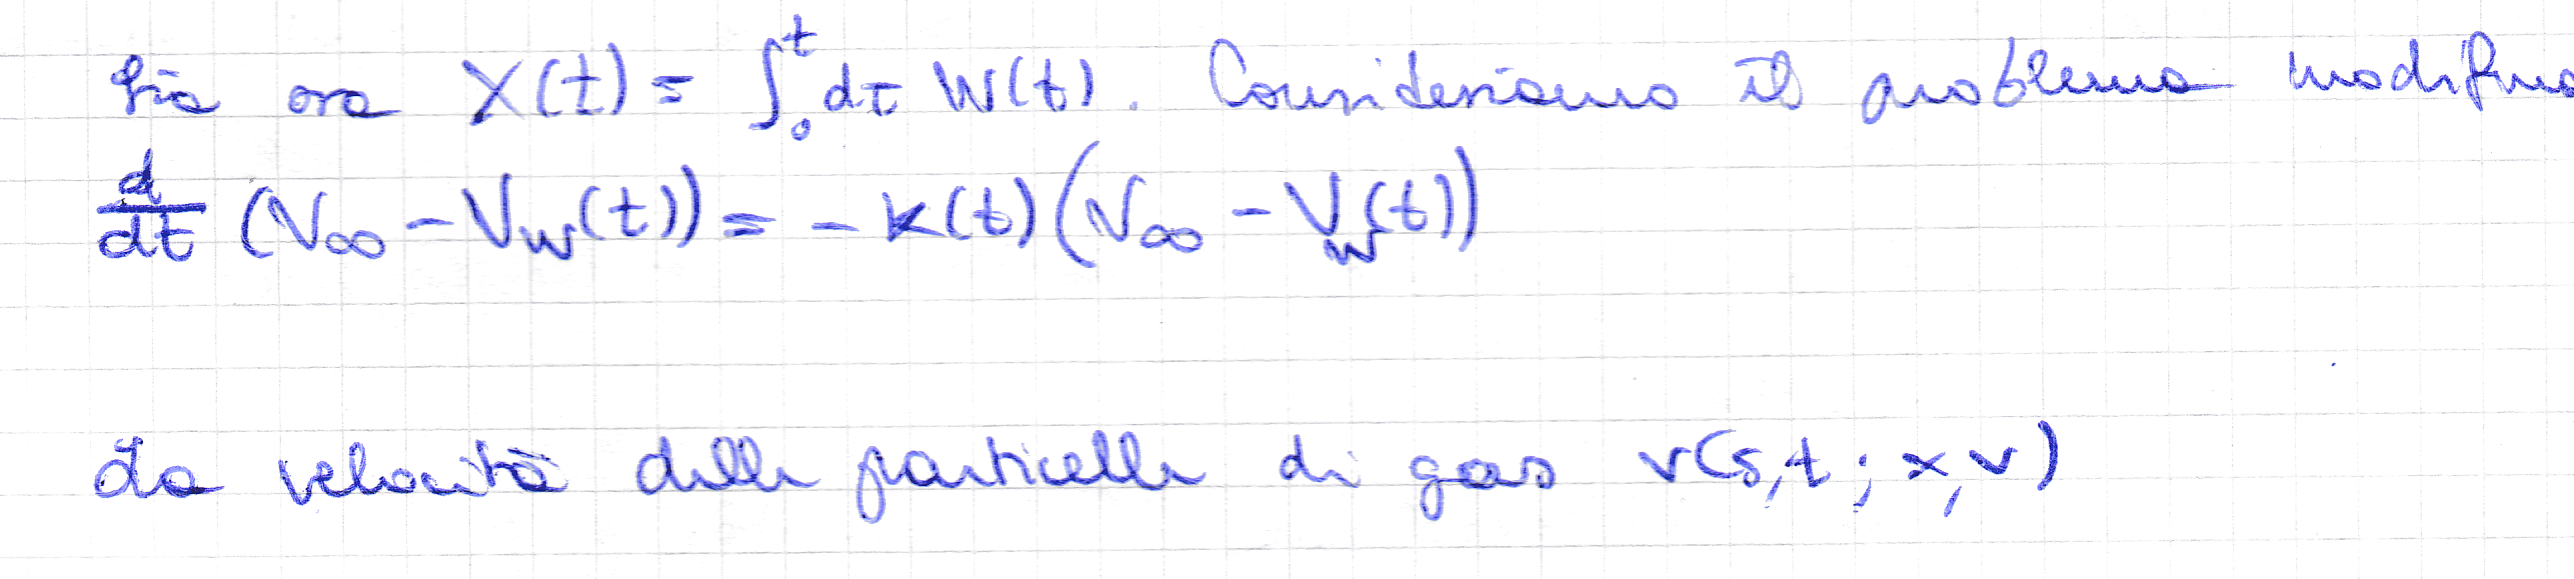 Sia ora X(t) = ∫₀ᵗ dτ W(t). Consideriamo il problema
d/dt (V∞ − V_W(t)) = − K(t) (V∞ − V_W(t))
La velocità delle particelle di gas v(s,t; x,v)